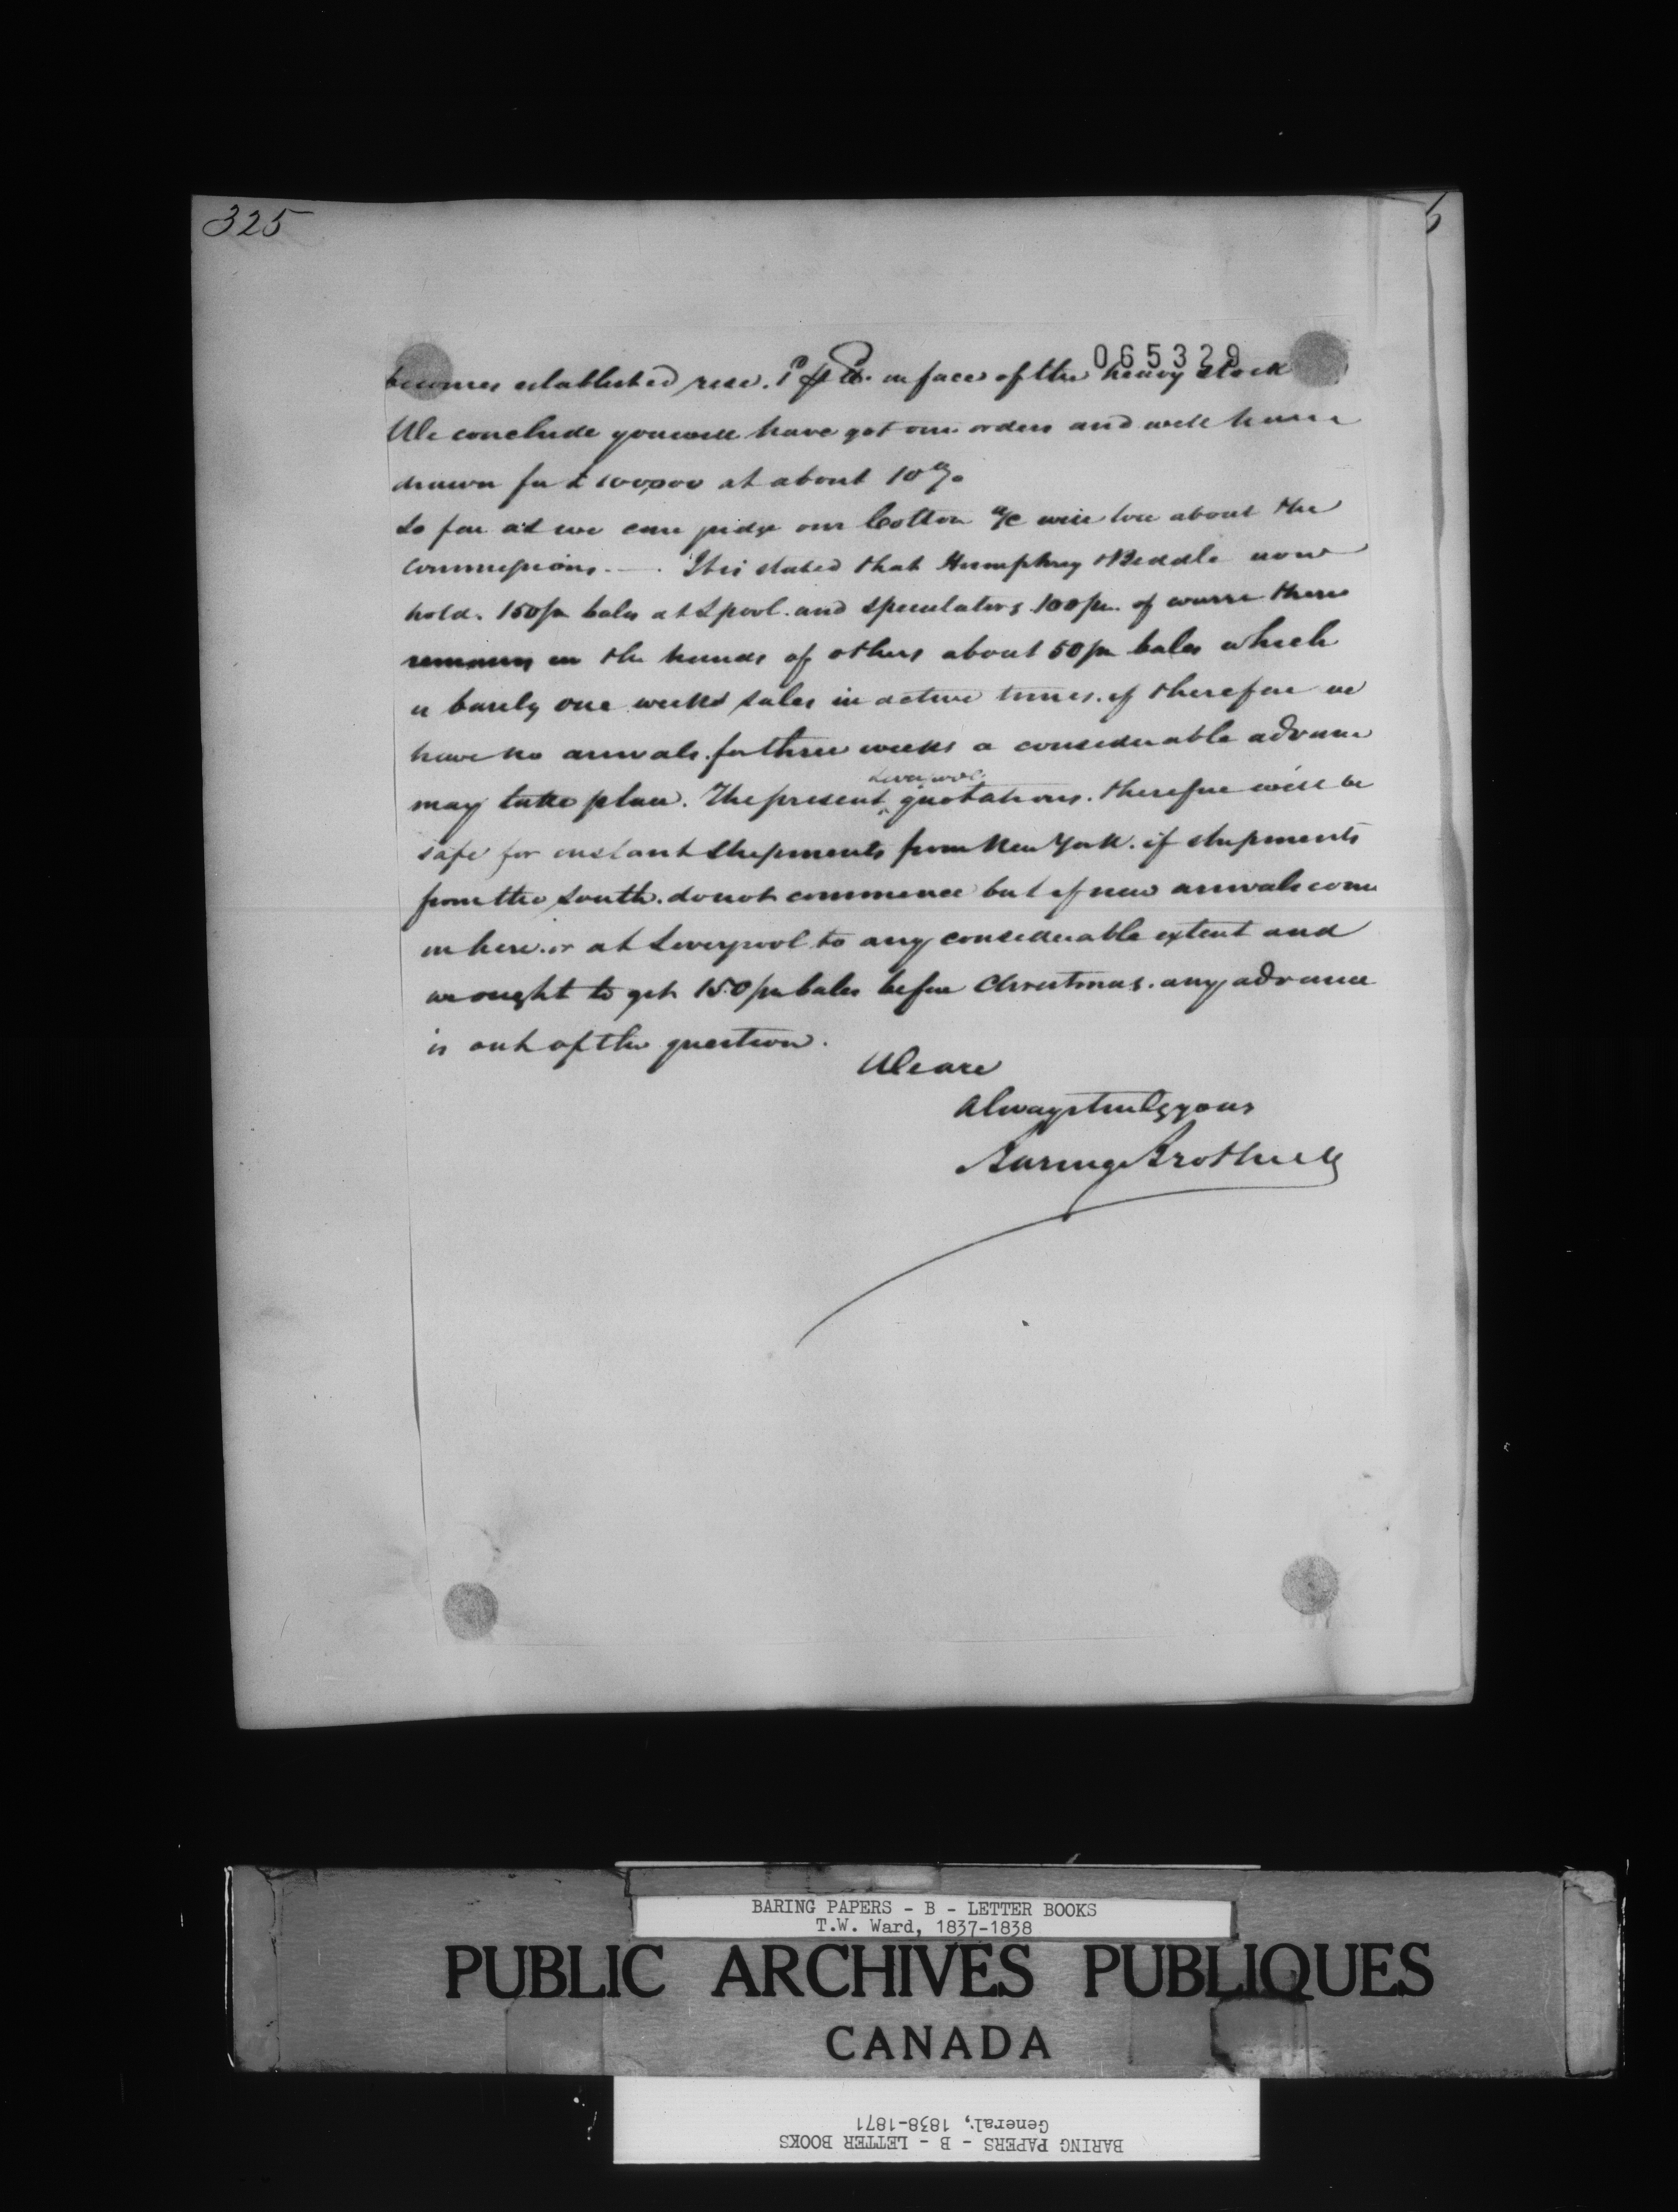 325
065329
becomes established rise. 1ᵈ ℔ in face of the heavy stock
We conclude you will have got our orders and will have
drawn for £100,000 at about 10%
So far as we can judge our Cotton a/c will lose about the
commissions. — . It is stated that Humphrey & Biddle now
hold. 150/m bales at Lpool. and speculators 100/m. of course there
remains in the hands of others about 50/m bales which
is barely one weeks sales in active times. if therefore we
have no arrivals. for three weeks a considerable advance
Liverpool
may take place. The present quotations. therefore will be
safe for instant shipments from New York. if shipments
from the South. do not commence but if new arrivals come
in here. or at Liverpool to any considerable extent and
we ought to get 150/m bales before Christmas. any advance
is out of the question.
We are
Always truly yours
Baring Brothers
BARING PAPERS - B - LETTER BOOKS
T.W. Ward, 1837-1838
PUBLIC ARCHIVES PUBLIQUES
CANADA
BARING PAPERS - B - LETTER BOOKS
General, 1838-1871